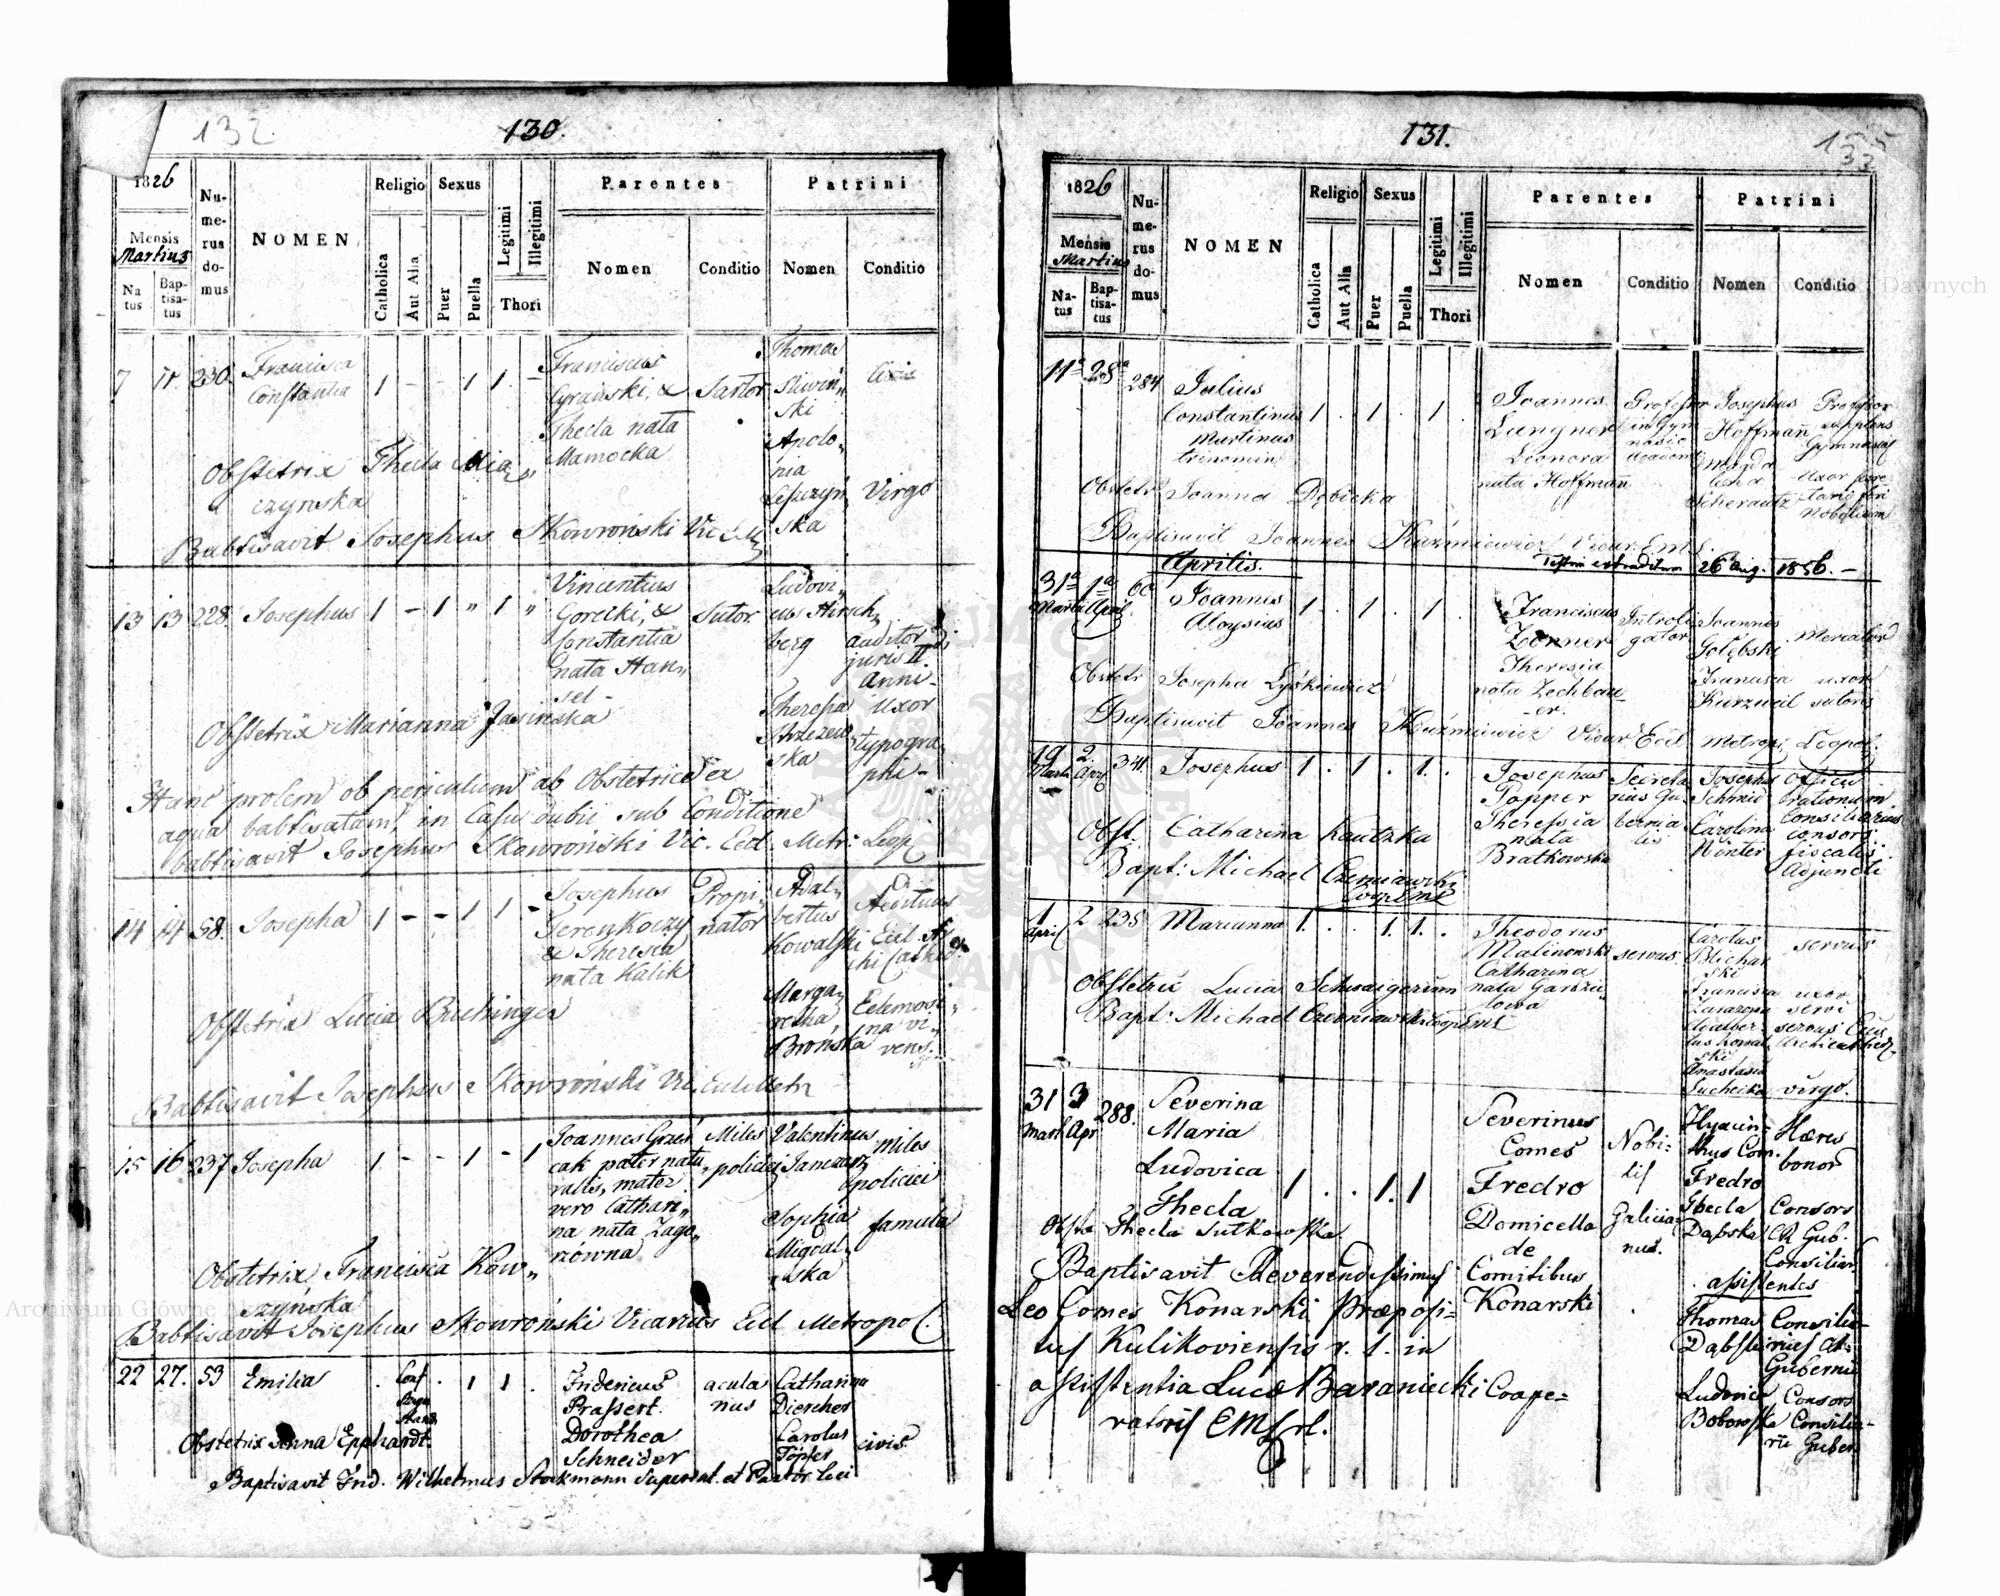 132
130.
1826
Mensis
Martius
Na
tus
Bap-
tisa-
tus
Nu-
me-
rus
do-
mus
NOMEN
Religio
Catholica
Aut Alia
Sexus
Puer
Puella
Legitimi
Illegitimi
Thori
Parentes
Nomen
Conditio
Patrini
Nomen
Conditio
7 11. 230. Francisca
Constantia
1 - - 1 1. -
Franciscus
Cyrański, &
Thecla nata
Mamocka
Sartor
Thomas
Sliwiń„
ski
civis
Apolo„
nia
ska
Virgo
Obstetrix Thecla Mia„
czynska
Babtisavit Josephus Skowroński Vic
13 13 228. Josephus 1 - 1 „ 1 „
Vincentius
Gorecki, &
Constantia
nata Han„
sel -
Sutor
Ludovi„
cus Hirsch„
berg
auditor
juris II.
Anni-
Theresa
ska
uxor
typogra„
phi-
Obstetrix Marianna Jasinska
Hanc prolem ob periculum ab Obstetrice ex
aqua babtisatam, in Casu dubii sub Conditione
babtisavit Josephus Skowroński Vic. Eccl. Metr:
14 14 58. Josepha 1 - - 1 1 -
Josephus
& Theresia
nata Kalik
Propi„
nator
Adal„
bertus
Kowalski
Aedituus
Eccl
Marga„
retha
Brońska
na vi„
vens.
Obstetrix Lucia Buchinger
Babtisavit Josephus Skowroński Vic. Eccl Metr
15 16 237 Josepha 1 - - 1 - 1
Joannes
cak pater natu„
ralis, mater
vero Cathari„
na nata Zago„
rzówna
Miles
policiei
Valentinus
Janczarz
miles
policiei
Sophia
Migdal„
ska
famula
Obstetrix Francisca Kow„
szyńska
Babtisavit Josephus Skowroński Vicarius Eccl Metropol.
22 27. 53 Emilia . Conf
Aug
. 1 1 .
Fridericus
Prassert.
Dorothea
Schneider
acula
nus
Catharina
Diercher
Carolus
Töpfer
civis
Obstetrix Anna Epphardt
Baptisavit Frid. Wilhelmus Stockmann Superint. et Pastor loci
131.
1826
Mensis
Martius
Na-
tus
Bap-
tisa-
tus
Nu-
me-
rus
do-
mus
NOMEN
Religio
Catholica
Aut Alia
Sexus
Puer
Puella
Legitimi
Illegitimi
Thori
Parentes
Nomen
Conditio
Patrini
Nomen
Conditio
11a 28a 284 Julius
Constantinus
Martinus
trinomin
1 . 1 . 1 .
Joannes
Langner
Leonora
nata Hoffman
Professor
in Gym
nasio
Academ
Josephus
Hoffman
Professor
supplens
Gymnasii
Magda
lena
Scherautz
Uxor
Nobilium
Obstetr Joanna Dębicka
Baptisavit Joannes Kuźmiewicz Vicar. E.M.L.
Testim extraditum 26 Aug. 1856. -
Aprilis.
31a
Martii
1a
April
60 Joannes
Aloysius
1 . 1 . 1
Franciscus
Zonner
Theresia
nata Zechbau
er.
Introli
gator
Joannes
Gołębski
Mercator
Francisca
Kurzweil
uxor
sutoris
Obstetr Josepha Łyśkiewicz
Baptisavit Joannes Kuźmiewicz Vicar Eccl Metropi. Leopol.
19
Martii
2.
Apr
341. Josephus 1 . 1 . 1 .
Josephus
Popper
Theressia
nata
Bratkowska
Secreta
rius Gu
bernia
lis
Josephus
Schmid
Carolina
Winter
Official
rationum.
Consiliarius
consors
fiscalis
Adjuncti
Obst. Catharina Kautzka
Bapt: Michael Czerniawski
Coop EML
1
April
2 235 Marianna 1. . . 1. 1. .
Theodorus
Malinowski
Catharina
nata
servus.
Carolus
Blichar
ski
servus
Francisca
uxor
servi
Adalber-
tus Kowal
ski
servus
Anastasia
Suchecka
virgo.
Obstetrix Lucia Schwaigerinn
Bapt: Michael Czerniawski Coop EML
31
Mart
3
Apr
288. Severina
Maria
Ludovica
Thecla
1 . . 1. 1
Severinus
Comes
Fredro
Domicella
de
Comitibus
Konarski
Nobi-
lis
Galicia-
nus.
Hyacin-
thus Com.
Fredro
Hæres
bonor
Thecla
Dąbska
Consors
CR Gub.
Consiliar.
assistentes
Thomas
Dąbski
Consilia-
rius
Gubernii
Ludovica
Bobowska
Consors
Consilia-
rii Guber
Obstx Thecla Sutkowska.
Baptisavit Reverendissimus
Leo Comes Konarski Præposi-
tus Kulikoviensis r. l. in
assistentia Lucæ Baraniecki Coope-
ratoris EML rl.